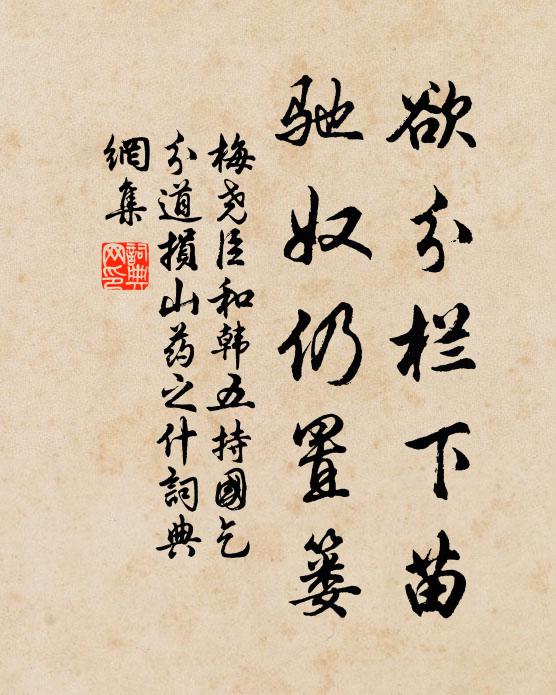 欲分栏下苗
驰奴仍置篓
梅尧臣和韩五持國乞
分道損山药之什詞典
網集
詞典網印